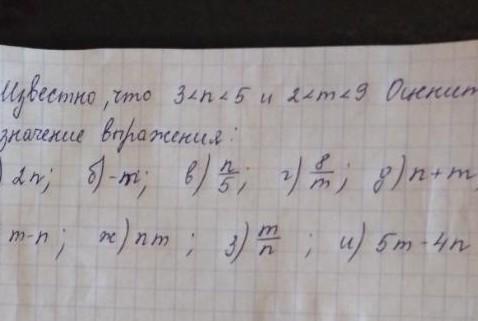 Известно, что 3<n<5 и 2<m<9 Оценит
значение выражения:
) 2n; б) -m; в) n/5; г) 8/m; д) n+m
m-n; ж) nm; з) m/n; и) 5m-4n